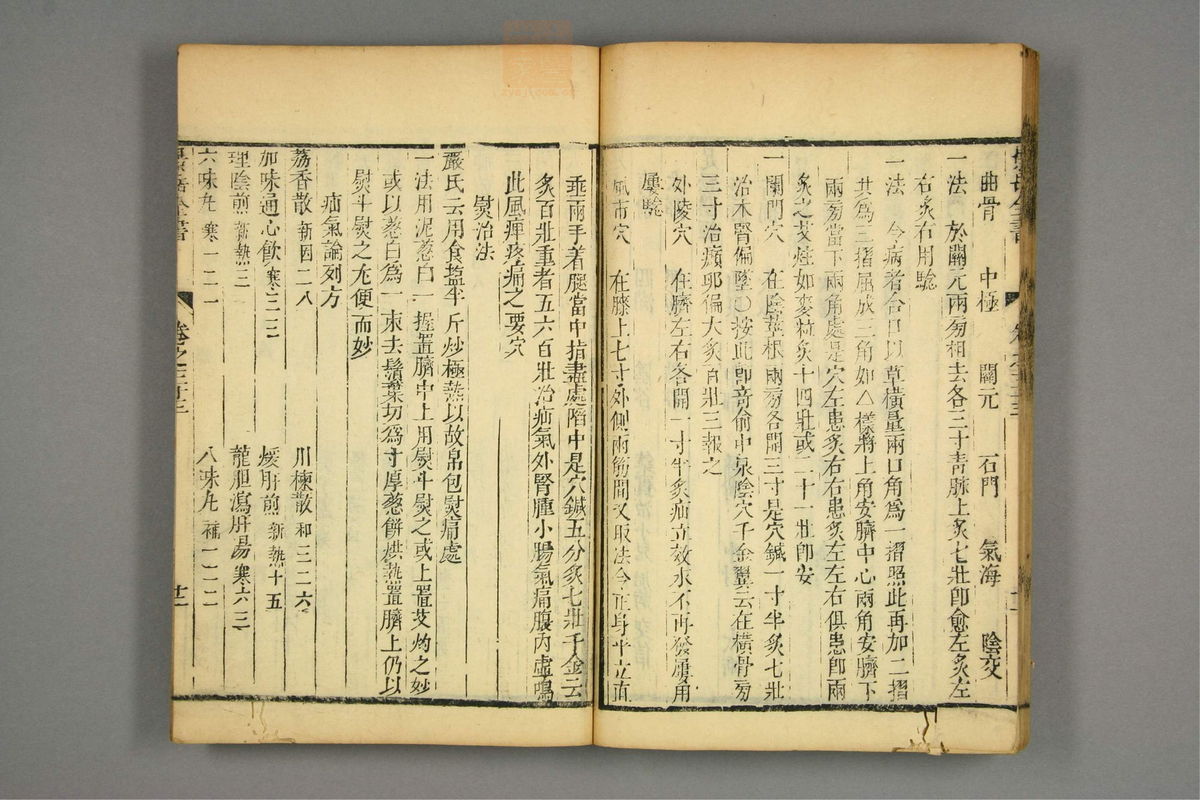 曲骨 中極 關元 石門 氣海 陰交
一法 於關元兩旁相去各三寸青脉上灸七壯卽愈左灸左
右灸右用驗
一法 令病者合口以草橫量兩口角爲一摺照此再加二摺
共爲三摺屈成三角如△樣將上角安臍中心兩角安臍下
兩旁當下兩角處是穴左患灸右右患灸左左右俱患卽兩
灸之艾炷如麥粒灸十四壯或二十一壯卽安
一闌門穴 在陰莖根兩旁各開三寸是穴鍼一寸半灸七壯
治木腎偏墜○按此卽竒俞中泉陰穴千金翼云在橫骨旁
三寸治癩卵偏大灸百壯三報之
外陵穴 在臍左右各開一寸半灸疝立效永不再發屢用
屢驗
風市穴 在膝上七寸外側兩筋間又取法令正身平立直
垂兩手着腿當中指盡處陷中是穴鍼五分灸七壯千金云
灸百壯重者五六百壯治疝氣外腎腫小腸氣痛腹內虛鳴
此風痺疼痛之要穴
熨治法
嚴氏云用食塩半斤炒極熱以故帛包熨痛處
一法用泥葱白一握置臍中上用熨斗熨之或上置艾灼之妙
或以葱白爲一束去鬚葉切爲寸厚葱餅烘熱置臍上仍以
熨斗熨之尤便而妙
疝氣論列方
荔香散新因二八 川楝散和三二六
加味通心飲寒三三 煖肝煎新熱十五
理陰煎新熱三 龍胆瀉肝湯寒六三
六味丸寒一二一 八味丸補一二二